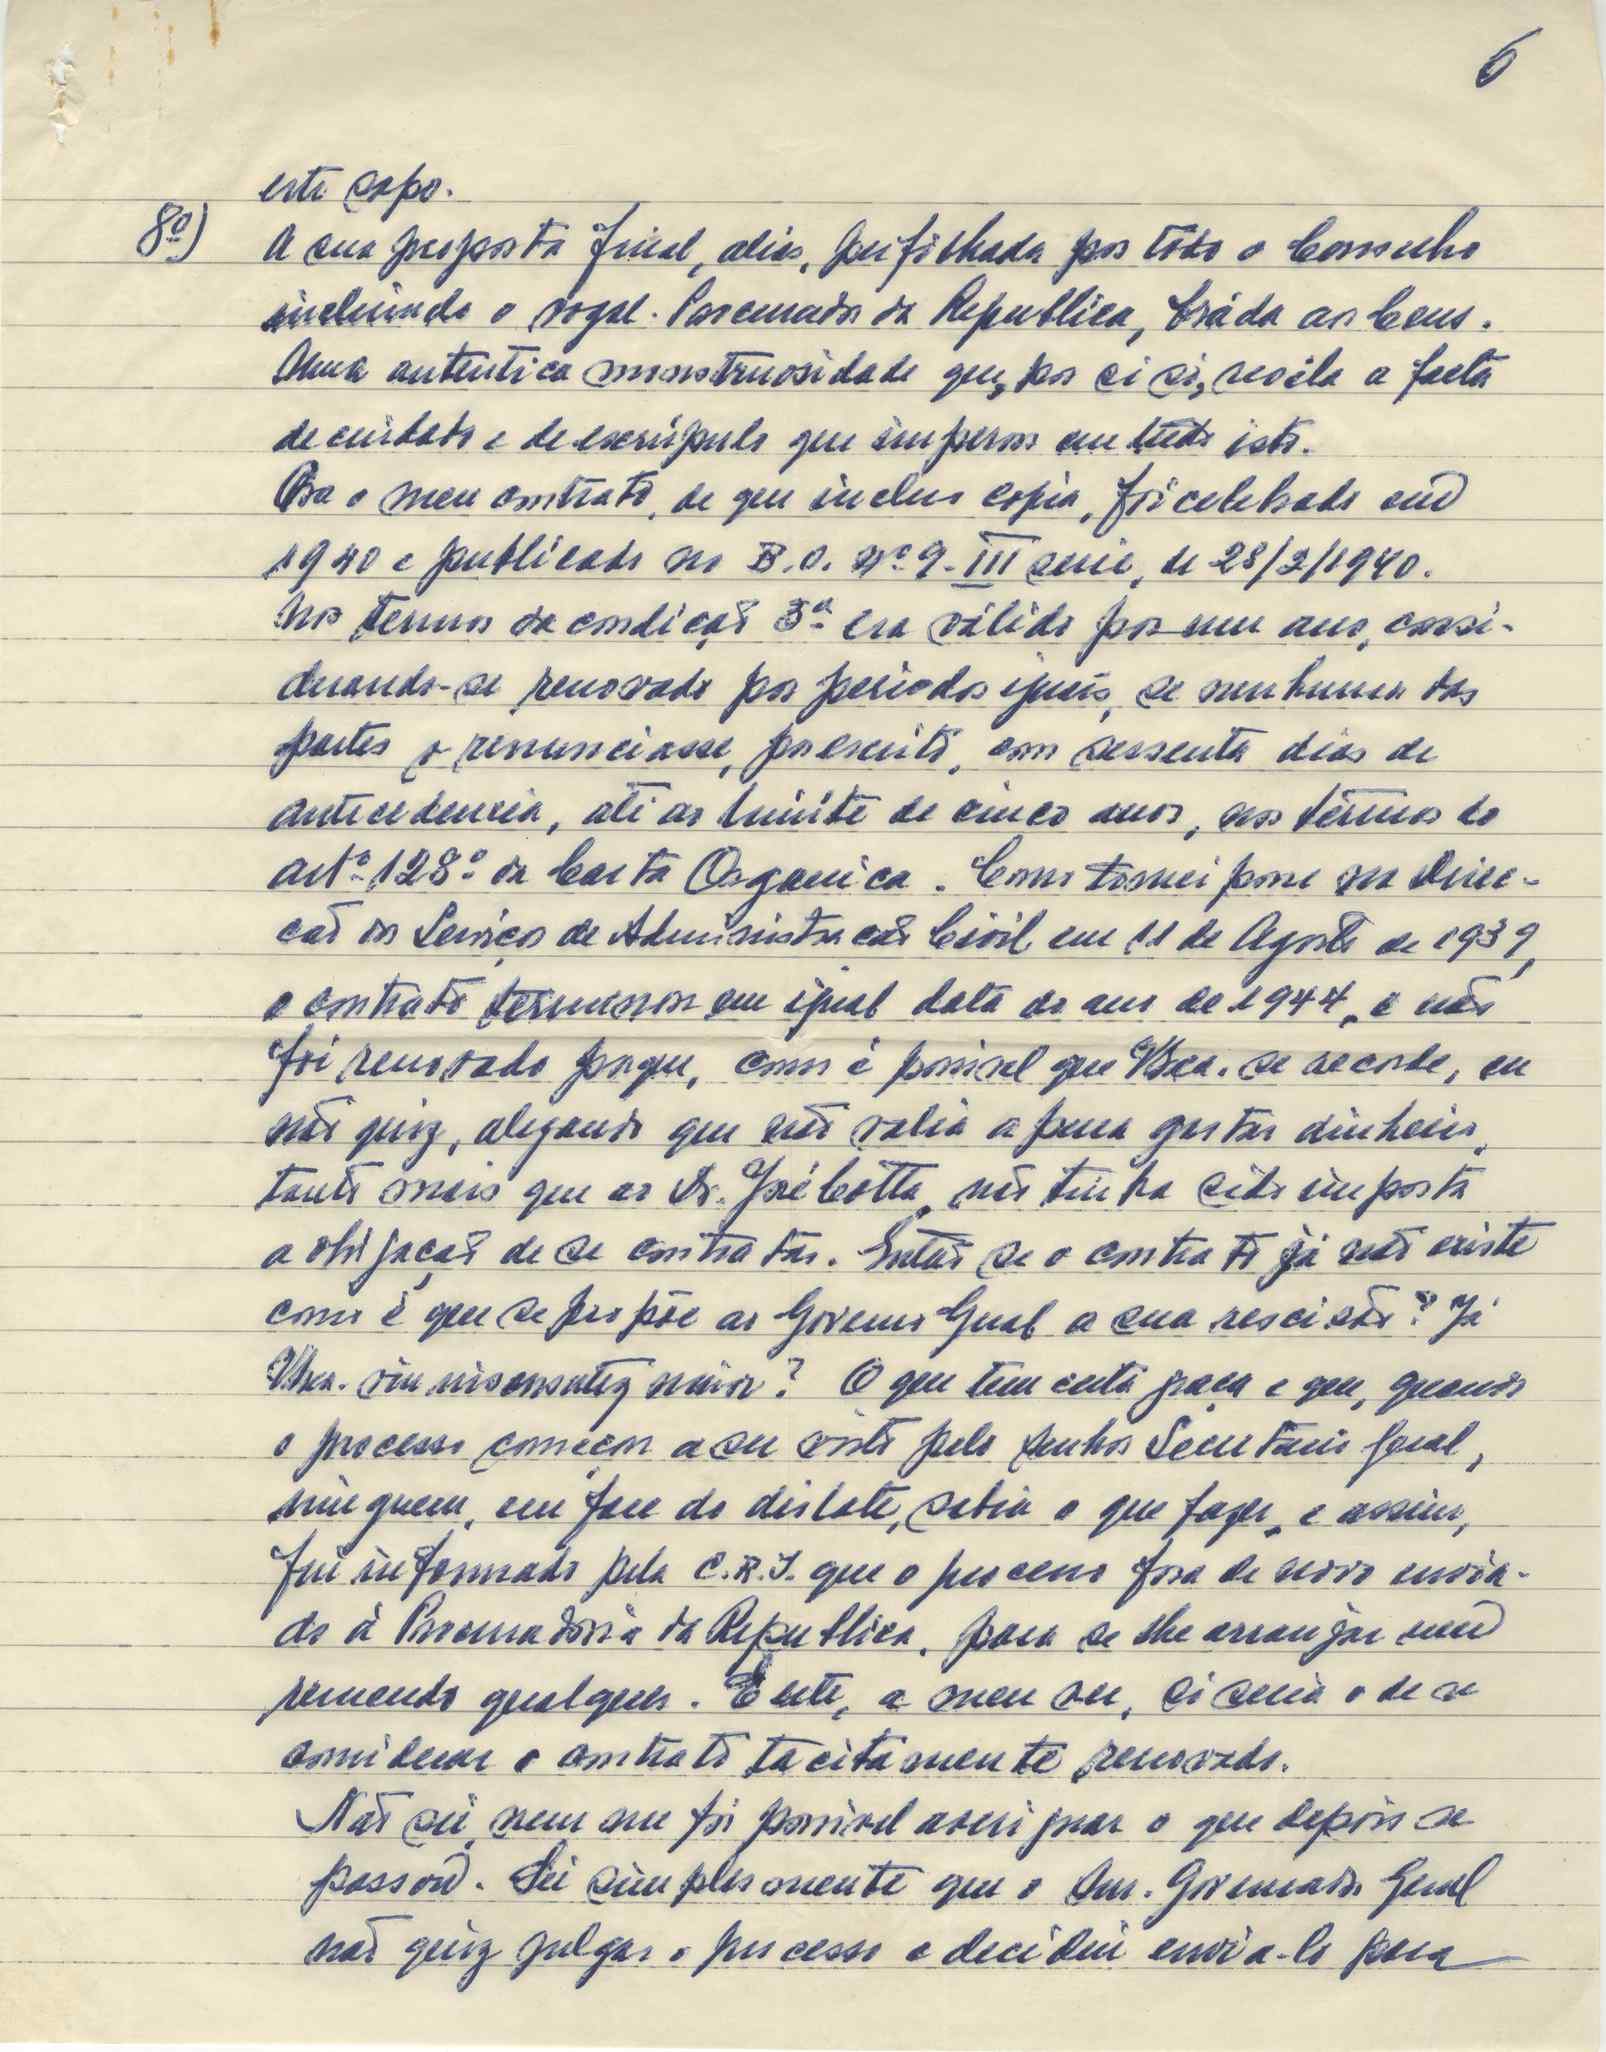 6
este sapo.
8º) A sua proposta final, alias, perfilhada por tôdo o Conselho
incluindo o vogal-Procurador da Republica, bráda aos Ceus.
Uma autentica monstruosidade que, por si só, revéla a falta
de cuidado e de escrúpulo que imperou em tudo isto.
Ora o meu contrato, de que incluo copia, foi celebrado em
1940 e publicado no B.O. nº 9-III serie, de 28/2/1940.
Nos termos da condição 3ª era válido por um ano, consi-
derando-se renovado por periodos iguais, se nenhuma das
partes o renunciasse, por escrito, com sessenta dias de
antecedencia, até ao limite de cinco anos, nos têrmos do
artº 128º da Carta Organica. Como tomei posse na Direc-
ção dos Serviços de Administração Civil em 11 de Agosto de 1939,
o contrato terminou em igual data do ano de 1944, e não
foi renovado porque, como é possivel que V.Exa. se recorde, eu
não quiz, alegando que não valia a pena gastar dinheiro,
tanto mais que ao Dr. José Cotta, não tinha sido imposta
a obrigação de se contratar. Então se o contrato já não existe
como é que se propõe ao Governo Geral a sua rescisão? Já
V.Exa. viu insensatez maior? O que tem certa graça e que, quando
o processo começou a ser visto pelo senhor Secretario Geral,
ninguem, em face do dislate, sabia o que fazer, e assim,
fui informado pela C.R.I. que o processo fora de novo envia-
do á Procuradoria da Republica, para se lhe arranjar um
remendo qualquer. E este, a meu ver, só seria o de se
considerar o contrato tacitamente renovado.
Não sei, nem me foi possivel averiguar o que depois se
passou. Sei simplesmente que o Snr. Governador Geral
não quiz julgar o processo e decidiu envia-lo para